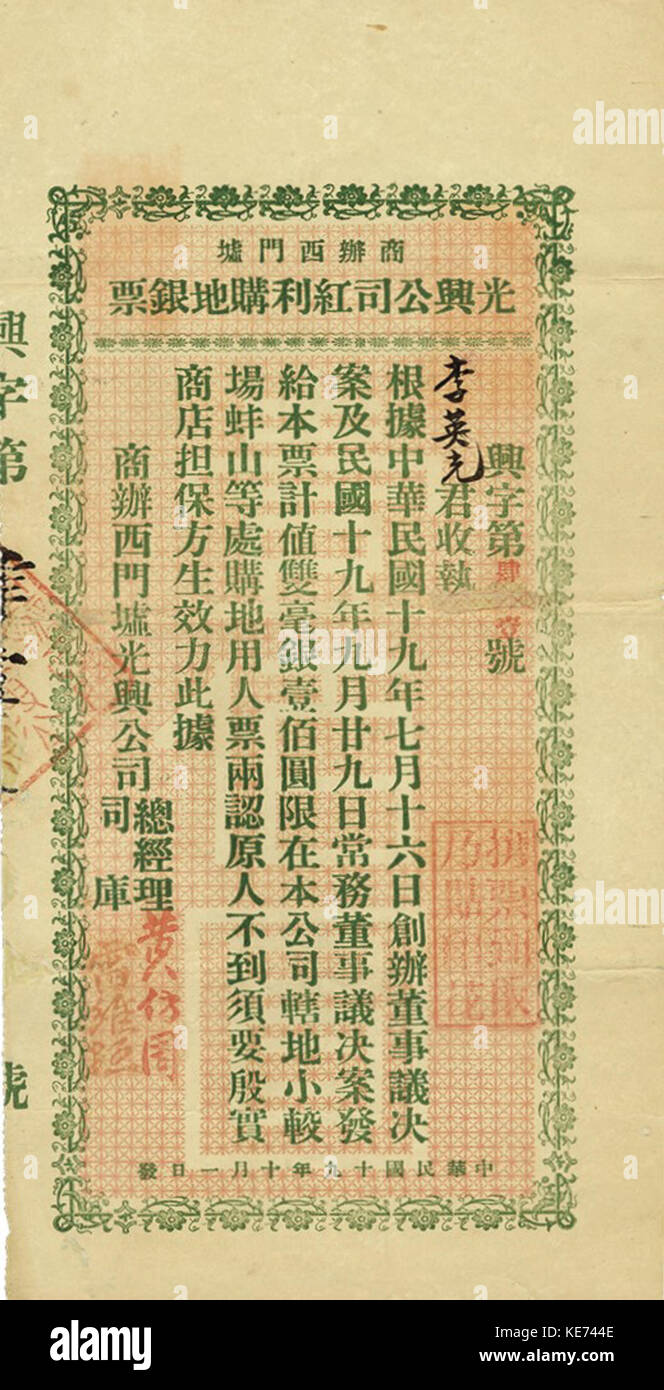 商辦西門墟
光興公司紅利購地銀票
興字第肆 壹號
李英克君收執
根據中華民國十九年七月十六日創辦董事議決
案及民國十九年九月廿九日常務董事議決案發
給本票計值雙毫銀壹佰圓限在本公司轄地小較
場蚌山等處購地用人票兩認原人不到須要殷實
商店担保方生效力此據
商辦西門墟光興公司總經理黃仿周
司庫
中華民國十九年十月一日發
興字第
號
alamy
alamy
alamy
Image ID: KE744E
www.alamy.com